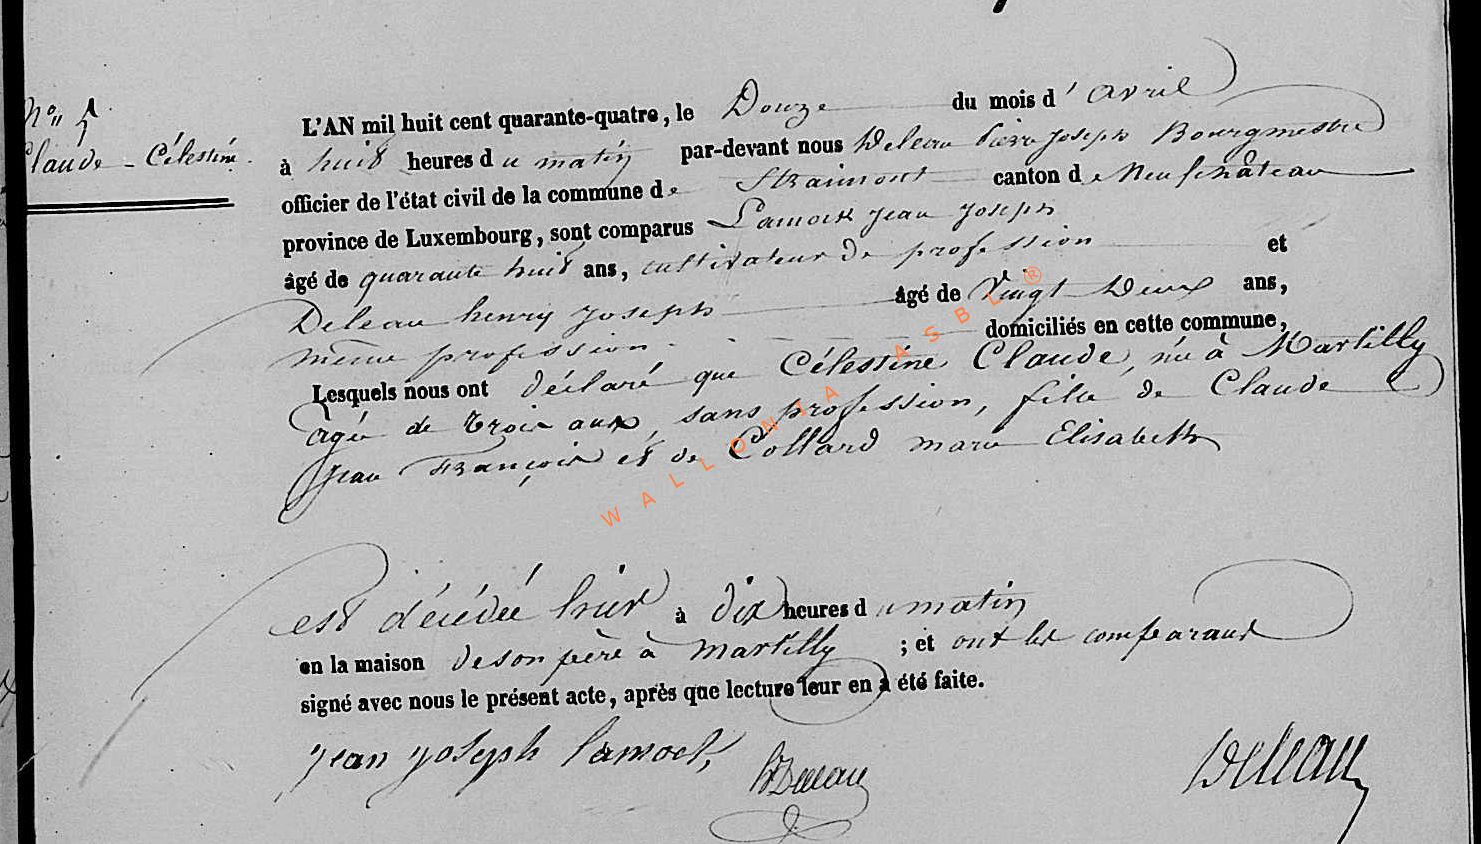 N° 5
Claude - Célestine.
L'AN mil huit cent quarante-quatre, le Douze du mois d'avril
à huit heures du matin par-devant nous Deleau Pierre Joseph Bourgmestre
officier de l'état civil de la commune de Straimont canton de Neufchâteau
province de Luxembourg, sont comparus Lamock Jean Joseph
âgé de quarante huit ans, cultivateur de profession et
Deleau henry Joseph âgé de Vingt Deux ans,
même profession domiciliés en cette commune,
Lesquels nous ont déclaré que Célestine Claude, née à Martilly
agée de trois ans, sans profession, fille de Claude
Jean François et de Collard marie Elisabeth
est décédée hier à dix heures du matin
en la maison de son père à martilly ; et ont les comparant
signé avec nous le présent acte, après que lecture leur en a été faite.
jean joseph lamock,
hDeleau
Deleau
WALLONIA ASBL ®